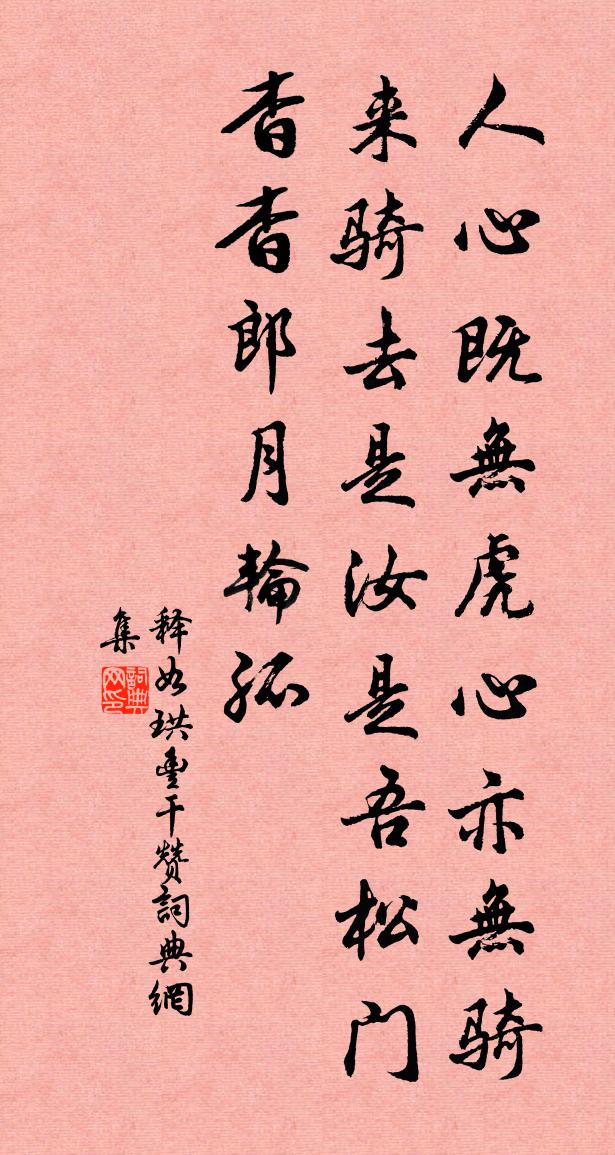 人心既無虎心亦無骑
来骑去是汝是吾松门
杳杳郎月輪孤
释如珙豊干赞詞典網
集
詞典网印